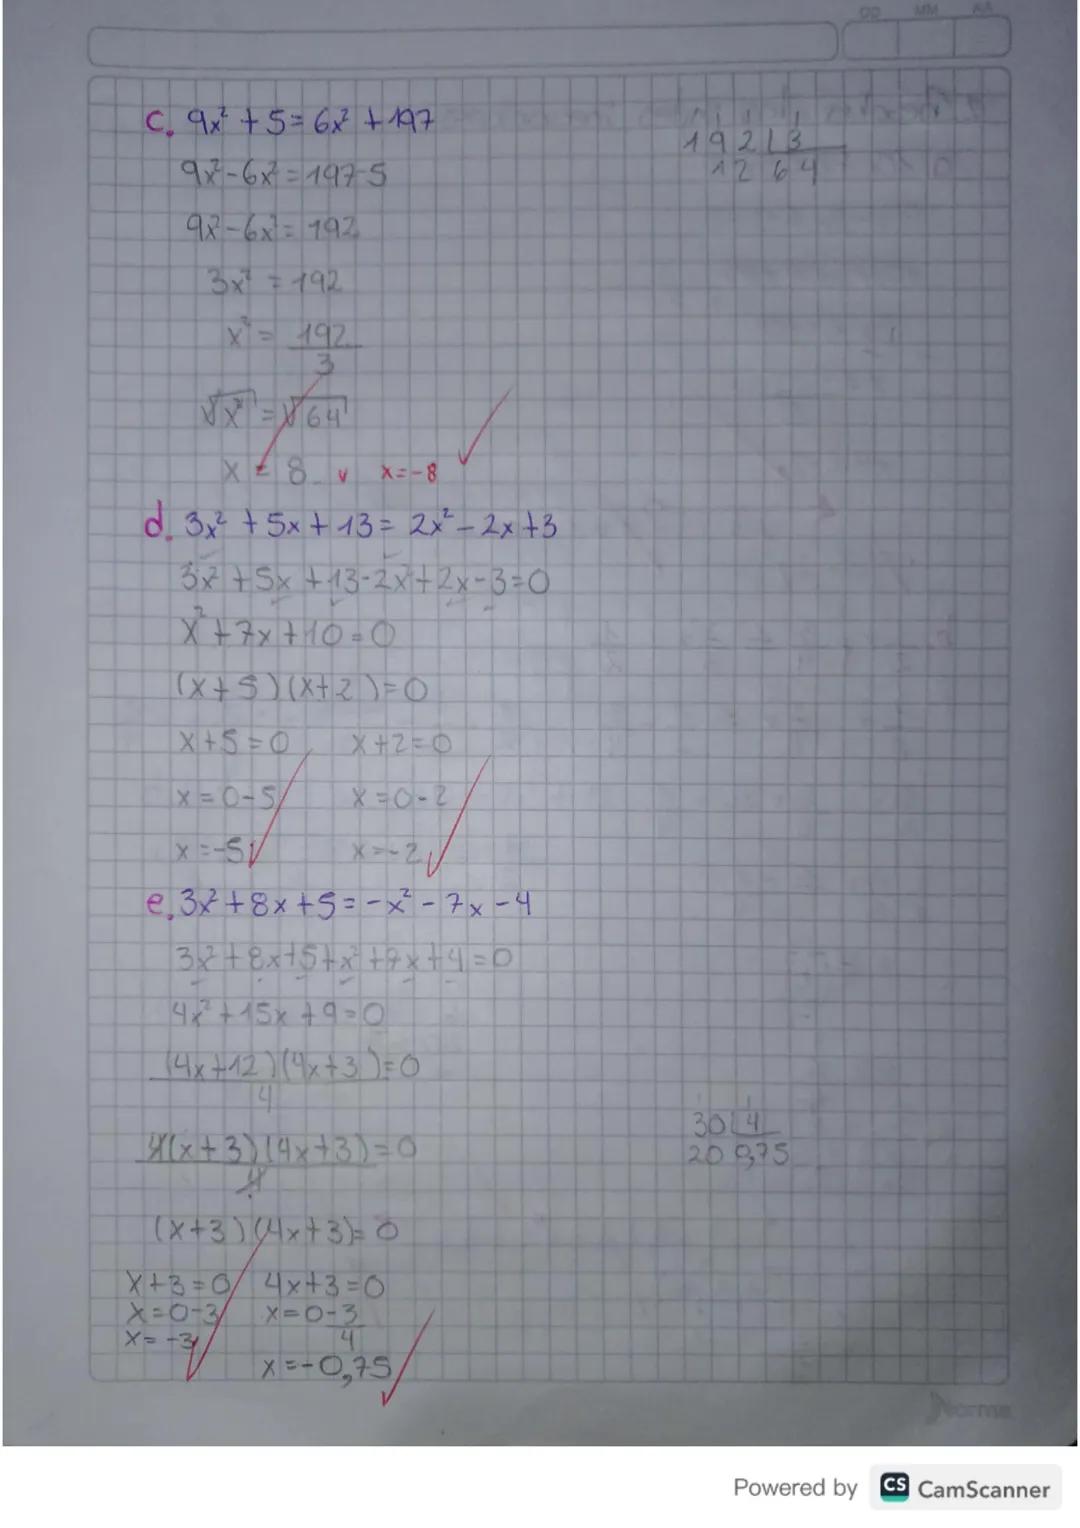 DD MM AA
c. 9x² + 5 = 6x² + 197
9x² - 6x² = 197-5
9x² - 6x² = 192
3x² = 192
x² = 192
3
√x² = √64
x = 8 v x = -8
192 | 3
12 64
d. 3x² + 5x + 13 = 2x² - 2x + 3
3x² + 5x + 13 - 2x² + 2x - 3 = 0
x² + 7x + 10 = 0
(x + 5)(x + 2) = 0
x + 5 = 0 x + 2 = 0
x = 0 - 5 x = 0 - 2
x = -5 x = -2
e. 3x² + 8x + 5 = -x² - 7x - 4
3x² + 8x + 5 + x² + 7x + 4 = 0
4x² + 15x + 9 = 0
(4x + 12)(4x + 3) = 0
4
4(x + 3)(4x + 3) = 0
4
(x + 3)(4x + 3) = 0
x + 3 = 0 4x + 3 = 0
x = 0 - 3 x = 0 - 3
4
x = -3
x = -0,75
30 | 4
20 0,75
Norma
Powered by CS CamScanner